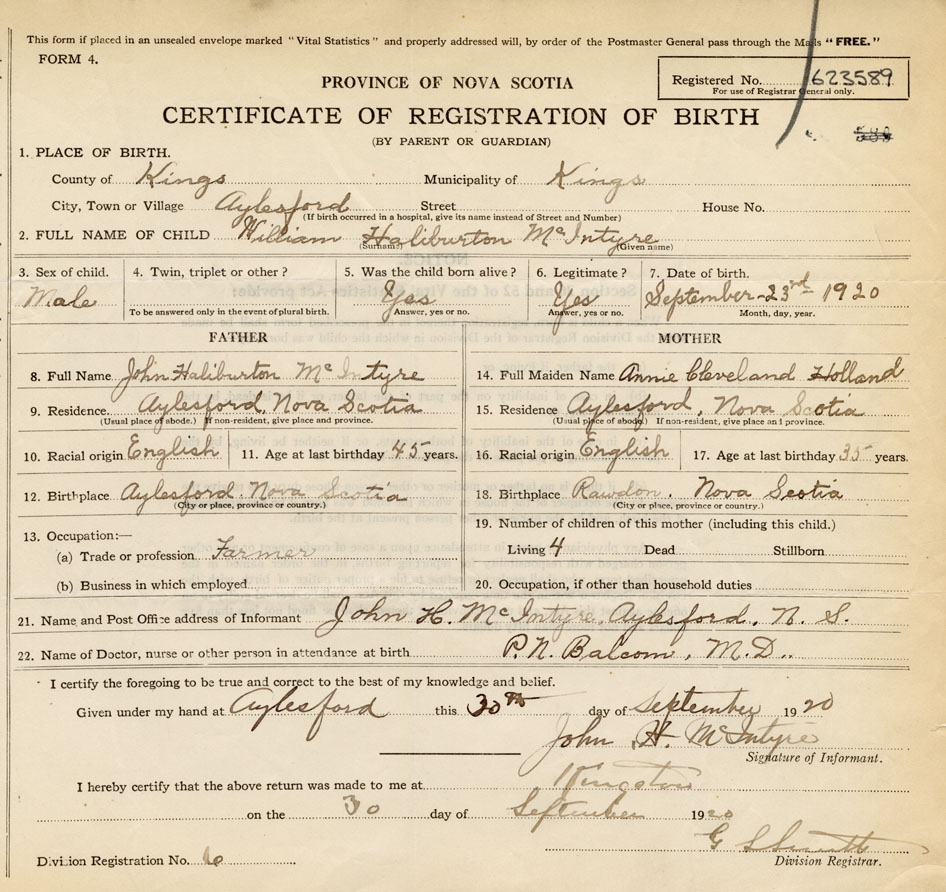 This form if placed in an unsealed envelope marked "Vital Statistics" and properly addressed will, by order of the Postmaster General pass through the Mails "FREE."
FORM 4.
Registered No. 623589
For use of Registrar General only.
PROVINCE OF NOVA SCOTIA
CERTIFICATE OF REGISTRATION OF BIRTH
(BY PARENT OR GUARDIAN)
1. PLACE OF BIRTH.
County of Kings Municipality of Kings
City, Town or Village Aylesford Street House No.
(If birth occurred in a hospital, give its name instead of Street and Number)
2. FULL NAME OF CHILD William Haliburton McIntyre
(Surname) (Given name)
3. Sex of child. 4. Twin, triplet or other? 5. Was the child born alive? 6. Legitimate? 7. Date of birth.
Male Yes Yes September-23rd 1920
To be answered only in the event of plural birth. Answer, yes or no. Answer, yes or no. Month, day, year.
FATHER
8. Full Name John Haliburton McIntyre
9. Residence. Aylesford, Nova Scotia
(Usual place of abode.) If non-resident, give place and province.
10. Racial origin English 11. Age at last birthday 45 years.
12. Birthplace Aylesford. Nova Scotia
(City or place, province or country.)
13. Occupation:—
(a) Trade or profession Farmer
(b) Business in which employed
MOTHER
14. Full Maiden Name Annie Cleveland Holland
15. Residence Aylesford, Nova Scotia
(Usual place of abode.) If non-resident, give place and province.
16. Racial origin English 17. Age at last birthday 35 years.
18. Birthplace Rawdon. Nova Scotia
(City or place, province or country.)
19. Number of children of this mother (including this child.)
Living 4 Dead Stillborn
20. Occupation, if other than household duties
21. Name and Post Office address of Informant John H. McIntyre, Aylesford, N. S.
22. Name of Doctor, nurse or other person in attendance at birth P. N. Balcom, M.D.
I certify the foregoing to be true and correct to the best of my knowledge and belief.
Given under my hand at Aylesford this 30th day of September 1920
John H. McIntyre
Signature of Informant.
I hereby certify that the above return was made to me at Kingston
on the 30 day of September 1920
Division Registration No. 6
Division Registrar.